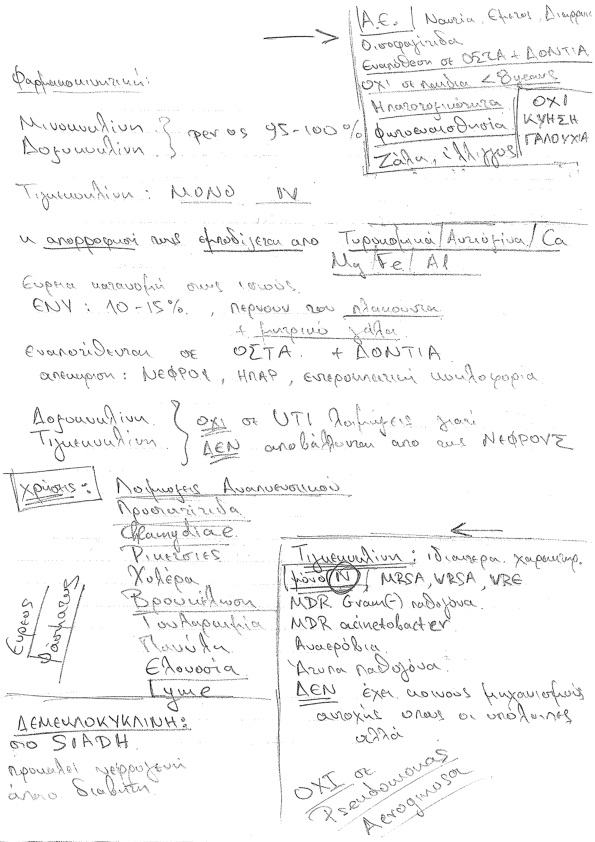 Α.Ε. / Ναυτία, Εμετος, Διαρροια
Οισοφαγίτιδα
Εναπόθεση σε ΟΣΤΑ + ΔΟΝΤΙΑ
ΟΧΙ σε παιδια < 8 years
Ηπατοτοξικότητα
Φωτοευαισθησία
Ζάλη, ίλιγγος
ΟΧΙ
ΚΥΗΣΗ
ΓΑΛΟΥΧΙΑ
Φαρμακοκινητική:
Μινοκυκλίνη
Δοξυκυκλίνη } per os 95-100%
Τιγκεκυκλίνη : ΜΟΝΟ IV
Η απορρόφηση τους εμποδίζεται απο Τυροκομικά / Αντιόξινα / Ca
Mg / Fe / Al
Ευρεια κατανομή στους ιστούς.
ΕΝΥ : 10-15%. , περνουν τον πλακουντα
+ μητρικό γάλα
Εναποτίθενται σε ΟΣΤΑ + ΔΟΝΤΙΑ
απεκκριση : ΝΕΦΡΟΙ, ΗΠΑΡ, εντεροηπατική κυκλοφορια
Δοξυκυκλίνη
Τιγκεκυκλίνη } ΟΧΙ σε UTI λοιμώξεις γιατί
ΔΕΝ αποβάλλονται απο τους ΝΕΦΡΟΥΣ
Χρήσεις : Λοιμωξεις Αναπνευστικού
Προστατίτιδα
Chlamydiae
Ρικετσιες
Χολέρα
Βρουκέλλωση
Τουλαραιμία
Πανώλη
Ελονοσία
Lyme
Ευρεος
φάσματος
ΔΕΜΕΚΛΟΚΥΚΛΙΝΗ:
στο SIADH
προκαλεί νεφρογενή
άποιο διαβήτη.
Τιγκεκυκλίνη : ιδιαιτερα χαρακτηρ.
μόνο IV / MRSA, VRSA, VRE
MDR Gram(-) παθογόνα.
MDR acinetobacter
Αναερόβια.
Άτυπα παθογόνα.
ΔΕΝ έχει κοινους μηχανισμούς
αντοχής οπως οι υπολοιπες
αλλά
ΟΧΙ σε
Pseudomonas
Aeroginosa